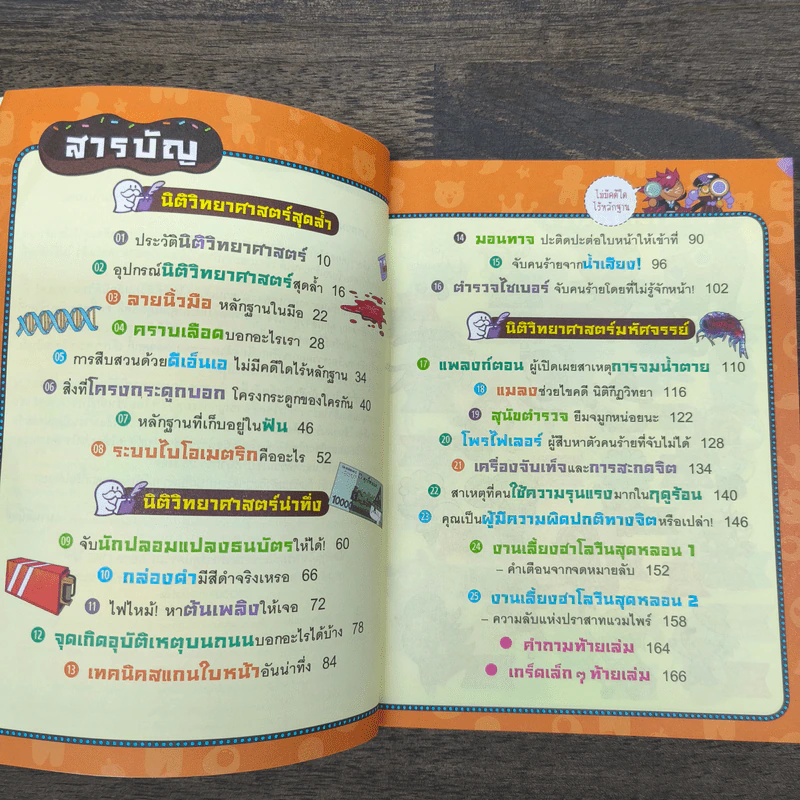 สารบัญ
นิติวิทยาศาสตร์สุดล้ำ
01 ประวัตินิติวิทยาศาสตร์ 10
02 อุปกรณ์นิติวิทยาศาสตร์สุดล้ำ 16
03 ลายนิ้วมือ หลักฐานในมือ 22
04 คราบเลือดบอกอะไรเรา 28
05 การสืบสวนด้วยดีเอ็นเอ ไม่มีคดีใดไร้หลักฐาน 34
06 สิ่งที่โครงกระดูกบอก โครงกระดูกของใครกัน 40
07 หลักฐานที่เก็บอยู่ในฟัน 46
08 ระบบไบโอเมตริกคืออะไร 52
นิติวิทยาศาสตร์น่าทึ่ง
10000
09 จับนักปลอมแปลงธนบัตรให้ได้! 60
10 กล่องดำมีสีดำจริงเหรอ 66
11 ไฟไหม้! หาต้นเพลิงให้เจอ 72
12 จุดเกิดอุบัติเหตุบนถนนบอกอะไรได้บ้าง 78
13 เทคนิคสแกนใบหน้าอันน่าทึ่ง 84
ไม่มีคดีใด
ไร้หลักฐาน
14 มอนทาจ ปะติดปะต่อใบหน้าให้เข้าที่ 90
15 จับคนร้ายจากน้ำเสียง! 96
16 ตำรวจไซเบอร์ จับคนร้ายโดยที่ไม่รู้จักหน้า! 102
นิติวิทยาศาสตร์มหัศจรรย์
17 แพลงก์ตอน ผู้เปิดเผยสาเหตุการจมน้ำตาย 110
18 แมลงช่วยไขคดี นิติกีฏวิทยา 116
19 สุนัขตำรวจ ยืมจมูกหน่อยนะ 122
20 โพรไฟเลอร์ ผู้สืบหาตัวคนร้ายที่จับไม่ได้ 128
21 เครื่องจับเท็จและการสะกดจิต 134
22 สาเหตุที่คนใช้ความรุนแรงมากในฤดูร้อน 140
23 คุณเป็นผู้มีความผิดปกติทางจิตหรือเปล่า! 146
24 งานเลี้ยงฮาโลวีนสุดหลอน 1
– คำเตือนจากจดหมายลับ 152
25 งานเลี้ยงฮาโลวีนสุดหลอน 2
– ความลับแห่งปราสาทแวมไพร์ 158
คำถามท้ายเล่ม 164
เกร็ดเล็ก ๆ ท้ายเล่ม 166